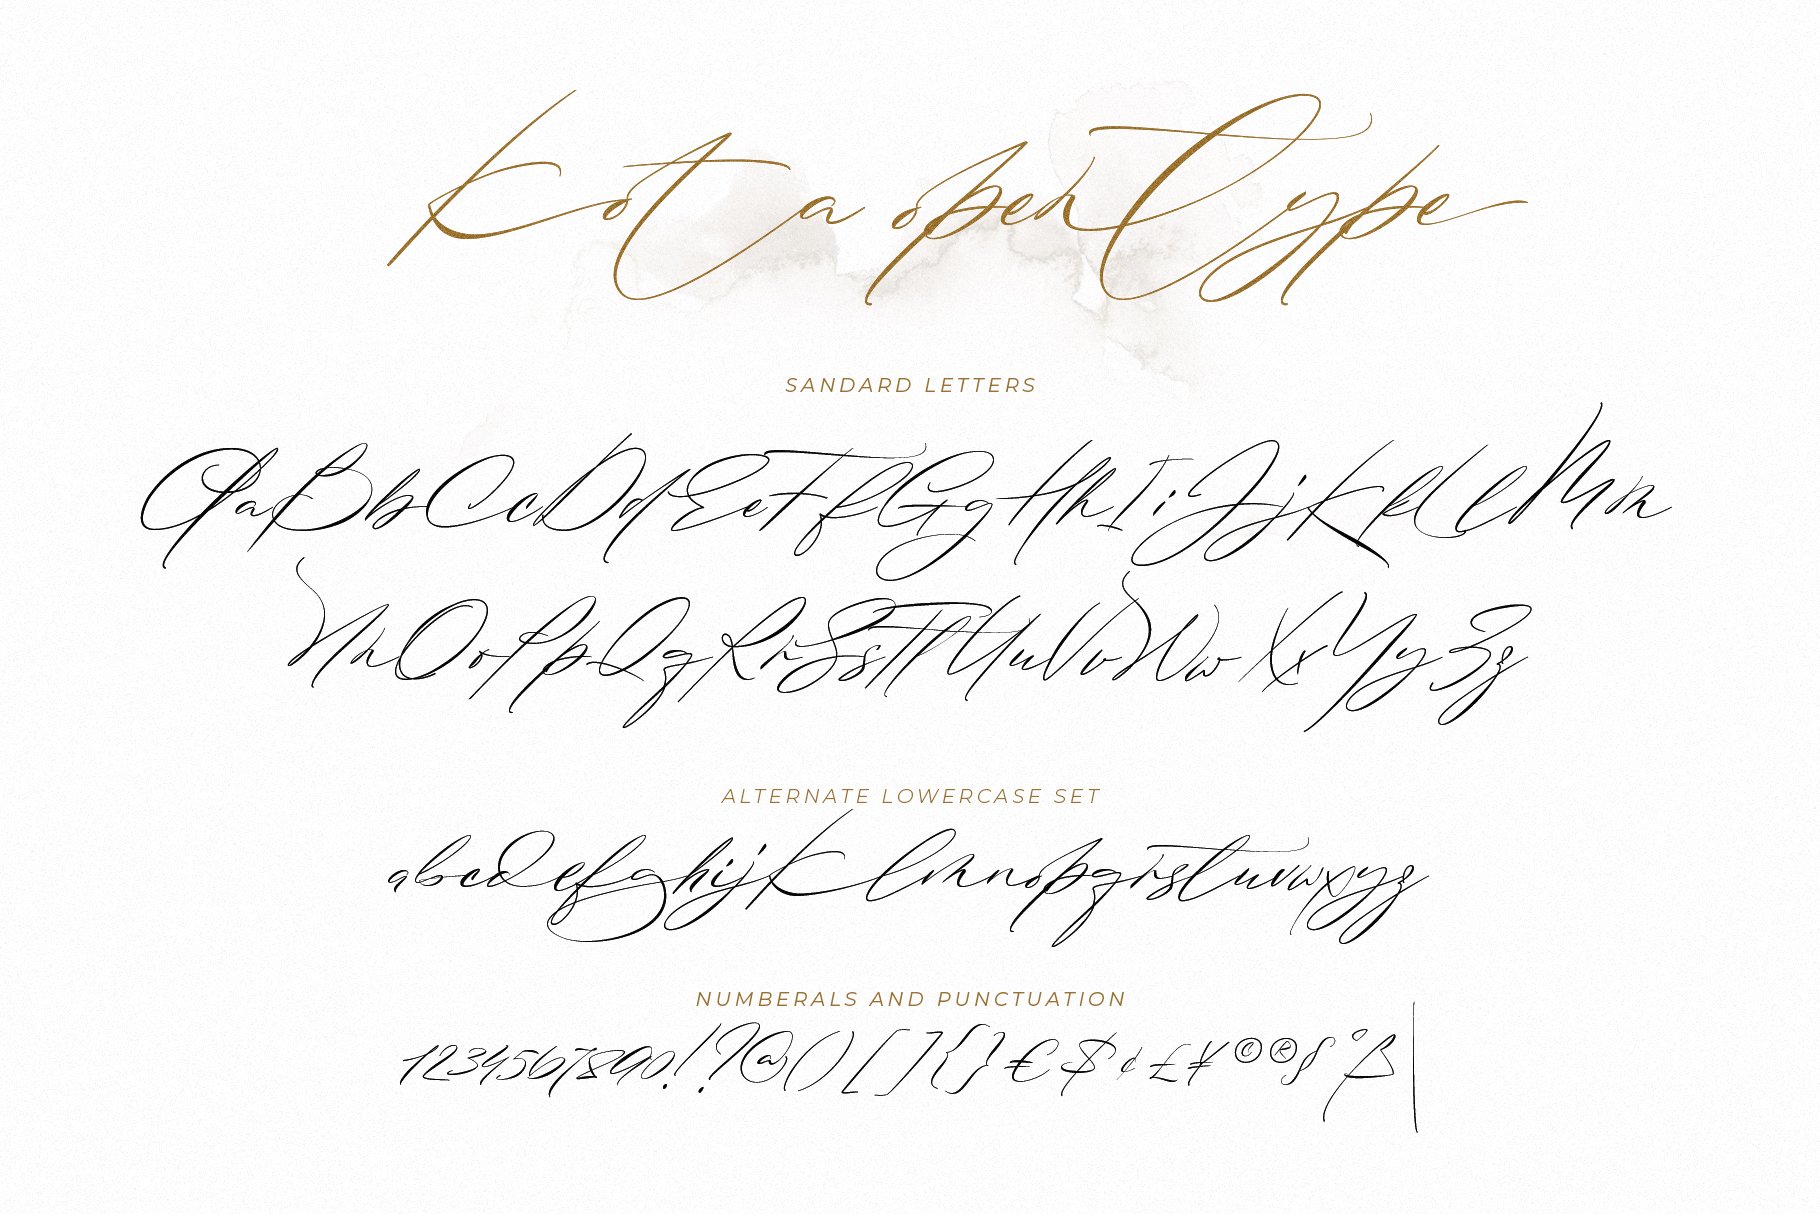 Kot a open Type
SANDARD LETTERS
AaBbCcDdEeFfGgHhIiJjKkLlMm
NnOoPpQqRrSsTtUuVvWwXxYyZz
ALTERNATE LOWERCASE SET
abcdefghijklmnopqrstuvwxyz
NUMBERALS AND PUNCTUATION
1234567890!?@()[]{}€$¢£¥©®§°ß|